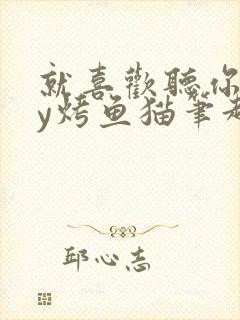 就喜歡聽你
y烤鱼猫筆趣
邱心志